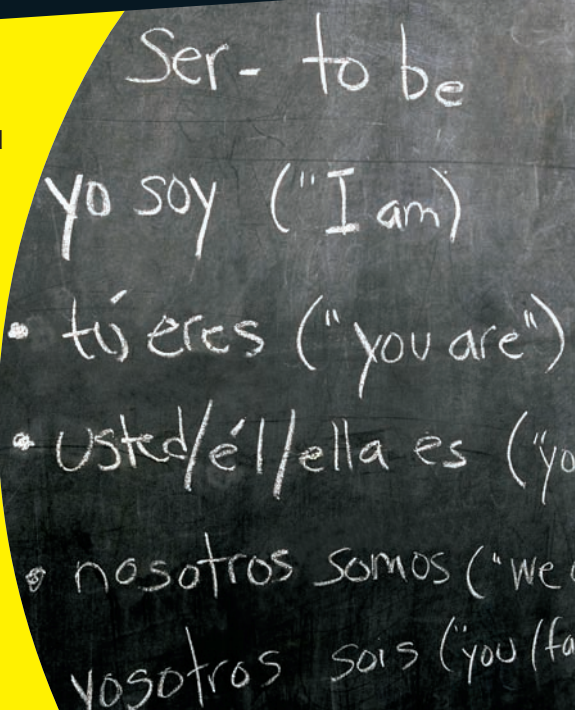 Ser- to be
yo soy ("I am)
• tú eres ("you are")
• usted/él/ella es ("yo
• nosotros somos ("we
vosotros sois ("you (fa